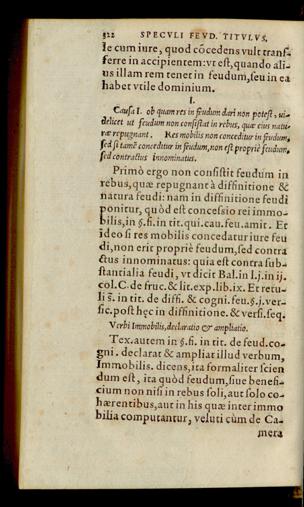 322 SPECVLI FEVD. TITVLVS.
le cum iure, quod cōcedens vult transf-
ferre in accipientem: vt est, quando ali-
us illam rem tenet in feudum, seu in ea
habet vtile dominium.
I.
Causa I. ob quam res in feudum dari non potest, ui-
delicet ut feudum non consistat in rebus, quæ eius natu-
ræ repugnant. Res mobilis non conceditur in feudum,
sed si tamē conceditur in feudum, non est propriè feudum,
sed contractus innominatus.
Primò ergo non consistit feudum in
rebus, quæ repugnant à diffinitione &
natura feudi: nam in diffinitione feudi
ponitur, quòd est concessio rei immo-
bilis, in §. fi. in tit. qui. cau. feu. amit. Et
ideo si res mobilis concedatur iure feu
di, non erit propriè feudum, sed contra
ctus innominatus: quia est contra sub-
stantialia feudi, vt dicit Bal. in l. j. in ij.
col. C. de fruc. & lit. exp. lib. ix. Et retu-
li s̄. in tit. de diffi. & cogni. feu. §. j. ver-
sic. post hęc in diffinitione. & versi. seq.
Verbi Immobilis, declaratio & ampliatio.
Tex. autem in §. fi. in tit. de feud. co-
gni. declarat & ampliat illud verbum,
Immobilis. dicens, ita formaliter scien
dum est, ita quòd feudum, siue benefi-
cium non nisi in rebus soli, aut solo co-
hærentibus, aut in his quæ inter immo
bilia computantur, veluti cùm de Ca-
mera